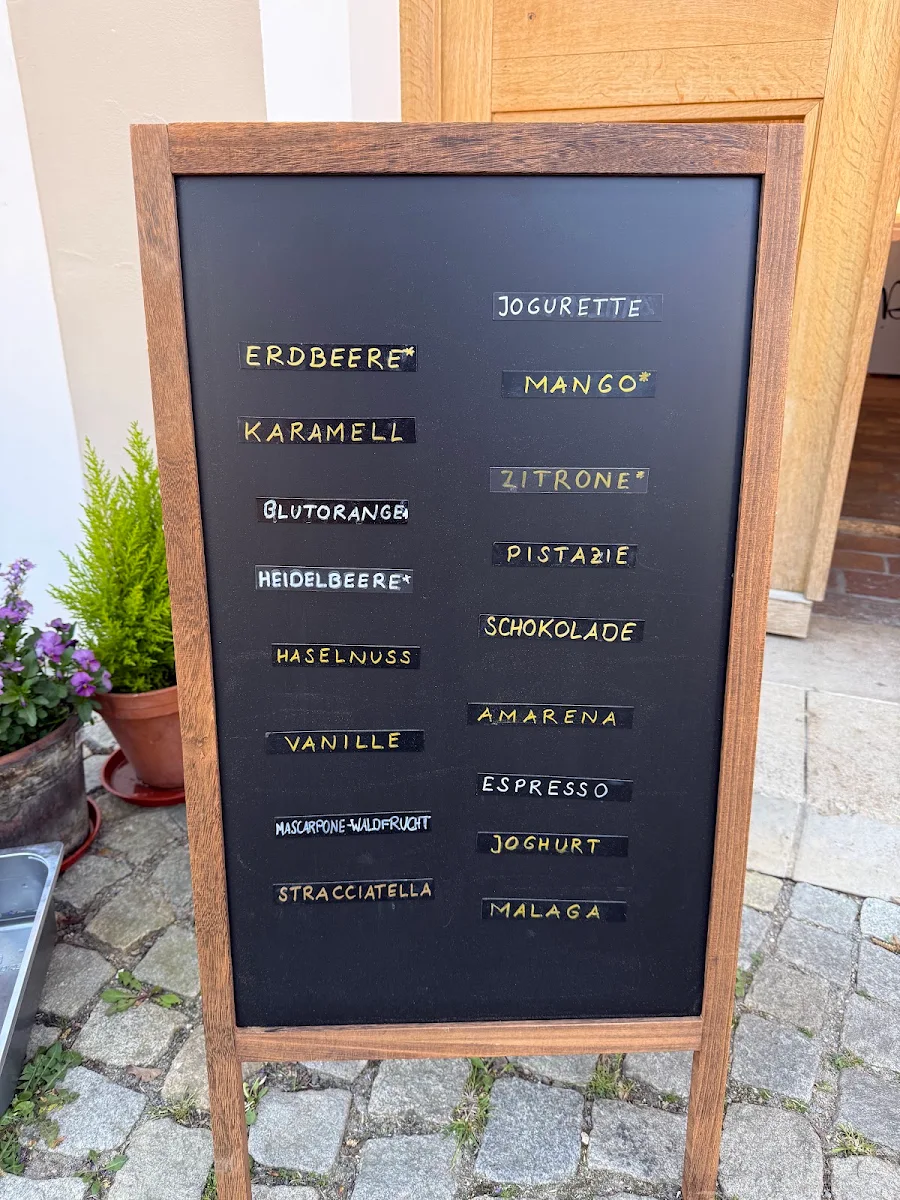 ERDBEERE*
KARAMELL
BLUTORANGE
HEIDELBEERE*
HASELNUSS
VANILLE
MASCARPONE-WALDFRUCHT
STRACCIATELLA
JOGURETTE
MANGO*
ZITRONE*
PISTAZIE
SCHOKOLADE
AMARENA
ESPRESSO
JOGHURT
MALAGA